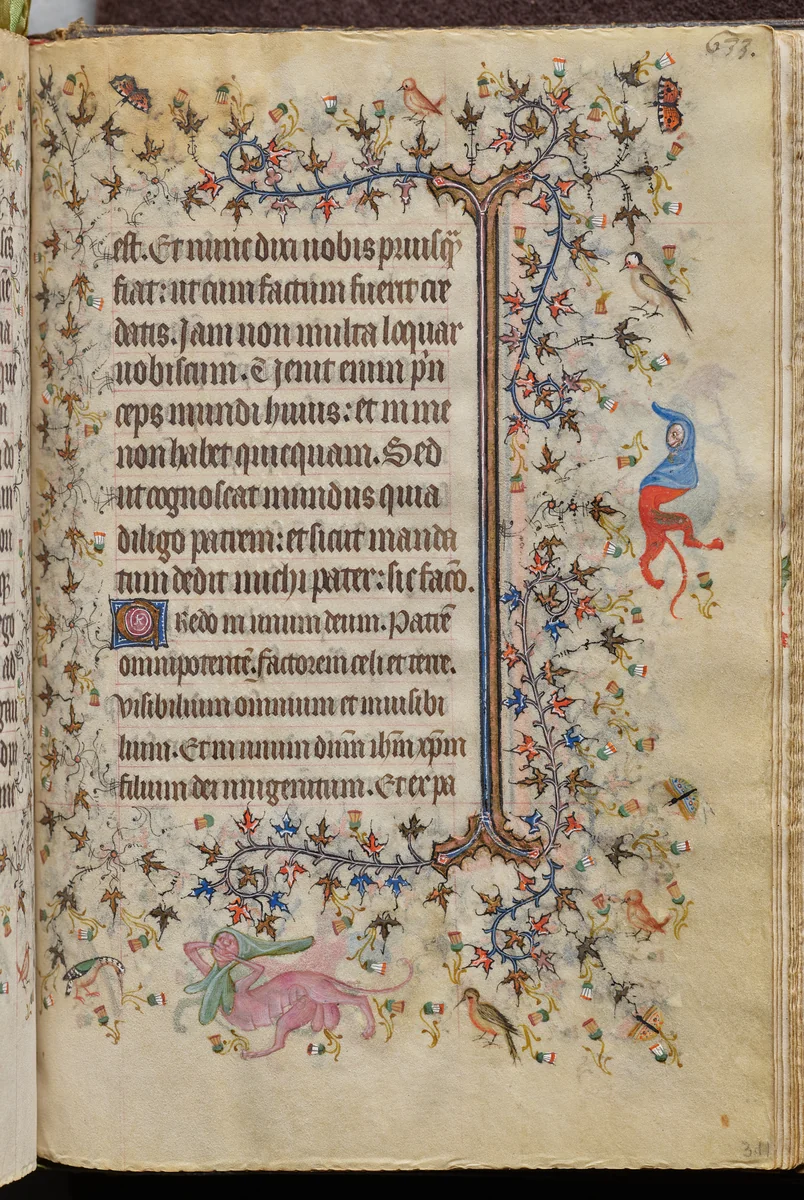 633.
est. Et nunc dixi uobis priusq̃
fiat: ut cum factum fuerit cre
datis. Jam non multa loquar
uobiscum. Venit enim pͥn
ceps mundi huius: et in me
non habet quicquam. Sed
ut cognoscat mundus quia
diligo patrem: et sicut manda
tum dedit michi pater: sic facio.
Credo in unum deum. Patrẽ
omnipotentẽ. factorem celi et terre.
visibilium omnium et inuisibi
lium. Et in unum dñm ihm̃ xp̃m
filium dei unigenitum. Et ex pa